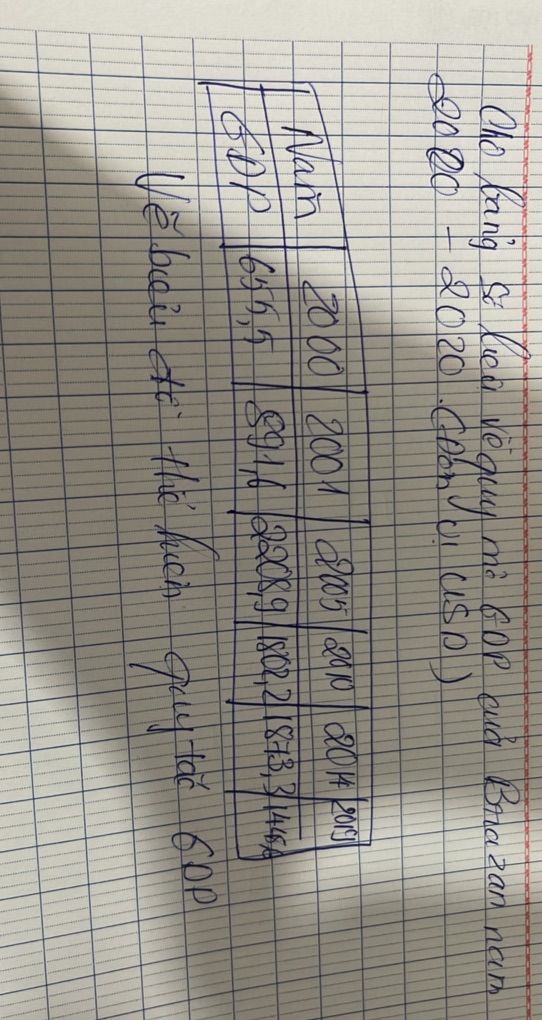 Cho bảng số liệu về quy mô GDP của Braxan năm
2000 - 2020. (Đơn vị USD)
Năm 2000 2001 2005 2010 2014
GDP 655,5 891,6 2208,9 1802,2 1873,3
Vẽ biểu đồ thể hiện quy tắc GDP